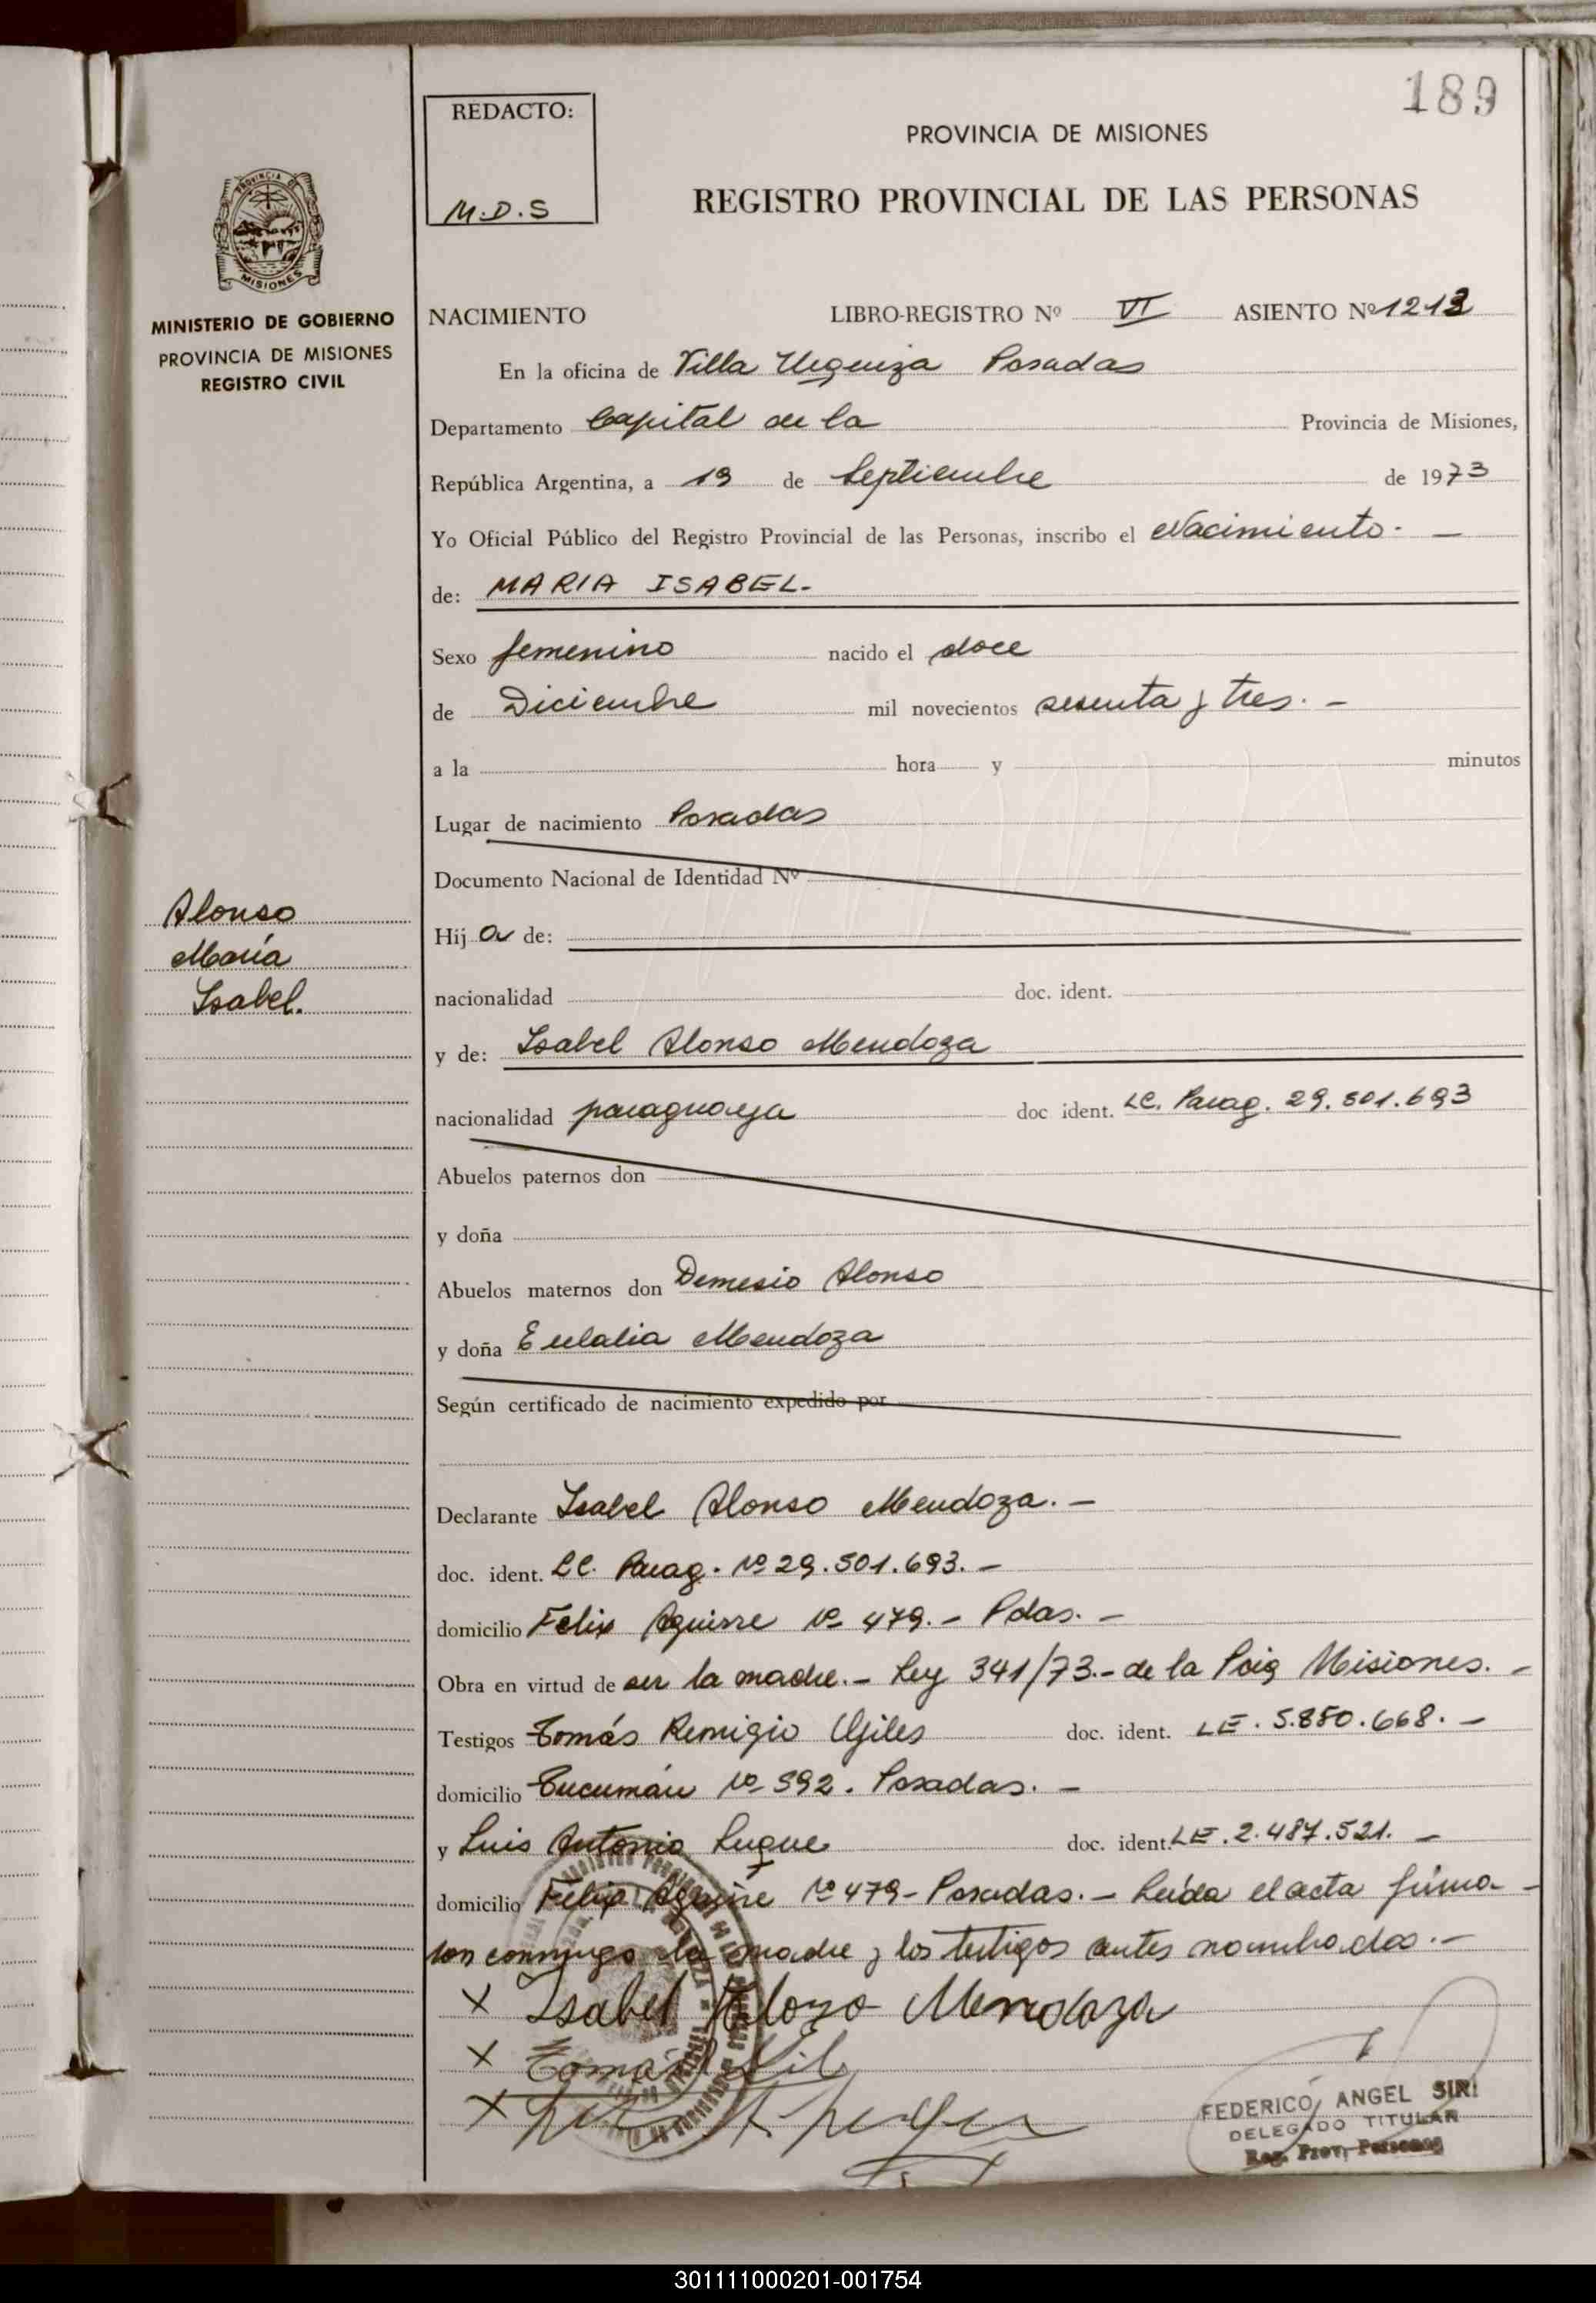 189
REDACTO:
M.D.S
PROVINCIA DE MISIONES
REGISTRO PROVINCIAL DE LAS PERSONAS
PROVINCIA DE
MISIONES
MINISTERIO DE GOBIERNO
PROVINCIA DE MISIONES
REGISTRO CIVIL
NACIMIENTO LIBRO-REGISTRO Nº VI ASIENTO Nº 1213
En la oficina de Villa Urquiza Posadas
Departamento Capital de la Provincia de Misiones,
República Argentina, a 19 de Septiembre de 1973
Yo Oficial Público del Registro Provincial de las Personas, inscribo el Nacimiento.-
de: MARIA ISABEL.
Sexo femenino nacido el doce
de Diciembre mil novecientos sesenta y tres.-
a la hora y minutos
Lugar de nacimiento Posadas
Documento Nacional de Identidad Nº
Alonso
María
Isabel.
Hija de:
nacionalidad doc. ident.
y de: Isabel Alonso Mendoza
nacionalidad paraguaya doc ident. LC. Parag. 29.501.693
Abuelos paternos don
y doña
Abuelos maternos don Demesio Alonso
y doña Eulalia Mendoza
Según certificado de nacimiento expedido por
Declarante Isabel Alonso Mendoza.-
doc. ident. LC. Parag. Nº 29.501.693.-
domicilio Felix Aguirre Nº 479.- Pdas.-
Obra en virtud de ser la madre.- Ley 341/73.- de la Pcia Misiones.-
Testigos Tomás Remigio doc. ident. LE. 5.880.668.-
domicilio Tucumán Nº 592. Posadas.-
y Luis Antonio Luque doc. ident. LE. 2.487.521.-
domicilio Felix Aguirre Nº 479- Posadas.- Leída el acta firma-
ron conmigo la madre y los testigos antes nombrados.-
x Isabel Alonzo Mendoza
x Tomás
x
FEDERICO ANGEL SIRI
DELEGADO TITULAR
Reg. Prov. Personas
301111000201-001754